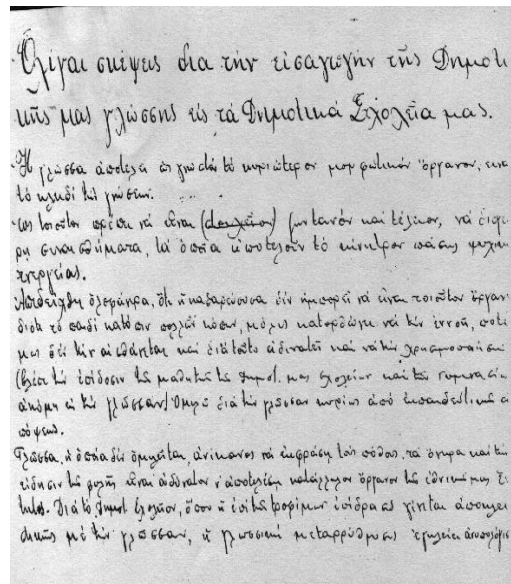 Ὀλίγαι σκέψεις δια τὴν εἰσαγωγὴν τῆς Δημοτι
κῆς μας γλώσσης εἰς τὰ Δημοτικὰ Σχολεῖα μας.
Ἡ γλῶσσα ἀποτελεῖ ὡς γνωστὸν τὸ κυριώτερον μορφωτικὸν ὄργανον, εἶναι
τὸ κλειδὶ τῆς γνώσεως.
Ὡς τοιοῦτον πρέπει νὰ εἶναι ζωντανὸν καὶ τέλειον, νὰ διεγεί
ρῃ συναισθήματα, τὰ ὁποῖα ἀποτελοῦν τὸ κίνητρον πάσης ψυχικῆς
ἐνεργείας.
Ἀπεδείχθη ὁλοφάνερα, ὅτι ἡ καθαρεύουσα δὲν ἠμπορεῖ νὰ εἶναι τοιοῦτον ὄργανον
διότι τὸ παιδὶ κατόπιν πολλῶν κόπων, μόλις κατορθώνει νὰ τὴν ἐννοῇ, ποτὲ
μας δὲν τὴν αἰσθάνεται καὶ διὰ τοῦτο ἀδυνατεῖ καὶ νὰ τὴν χρησιμοποιήσῃ
τὴν ἐπίδοσιν τῶν μαθητῶν τῶν δημοτ. μας σχολείων καὶ τῶν γυμνασίων
ἀκόμη εἰς τὴν γλῶσσαν) Ὁμιλῶ διὰ τὴν γλῶσσαν κυρίως ἀπὸ ἐκπαιδευτικῆς ἀ
πόψεως.
Γλῶσσα, ἡ ὁποία δὲν ὁμιλεῖται, ἀνίκανος νὰ ἐκφράσῃ τοὺς πόθους, τὰ ὄνειρα καὶ τὴν
τῆς ψυχῆς εἶναι ἀδύνατον ν' ἀποτελέσῃ κατάλληλον ὄργανον τῆς ἐθνικῆς μας
Διὰ τὸ δημοτ. σχολεῖον, ὅπου ἡ ἐπὶ τῶν τροφίμων ἐπίδρασις γίνεται ἀποκλει
στικῶς μὲ τὴν γλῶσσαν, ἡ γλωσσικὴ μεταρρύθμισις